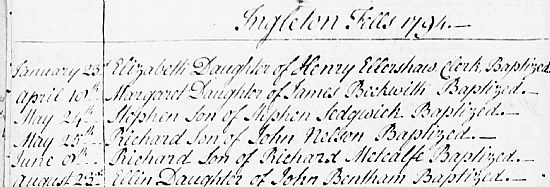 Ingleton Fells 1794.—
January 23d Elizabeth Daughter of Henry Ellershaw Clerk, Baptized
April 10th Margaret Daughter of James Beckwith Baptized.—
May 24th Stephen Son of Stephen Sedgwick Baptized.—
May 25th Richard Son of John Nelson Baptized.—
June 8th Richard Son of Richard Metcalfe Baptized.—
August 23d Ellin Daughter of John Bentham Baptized.—